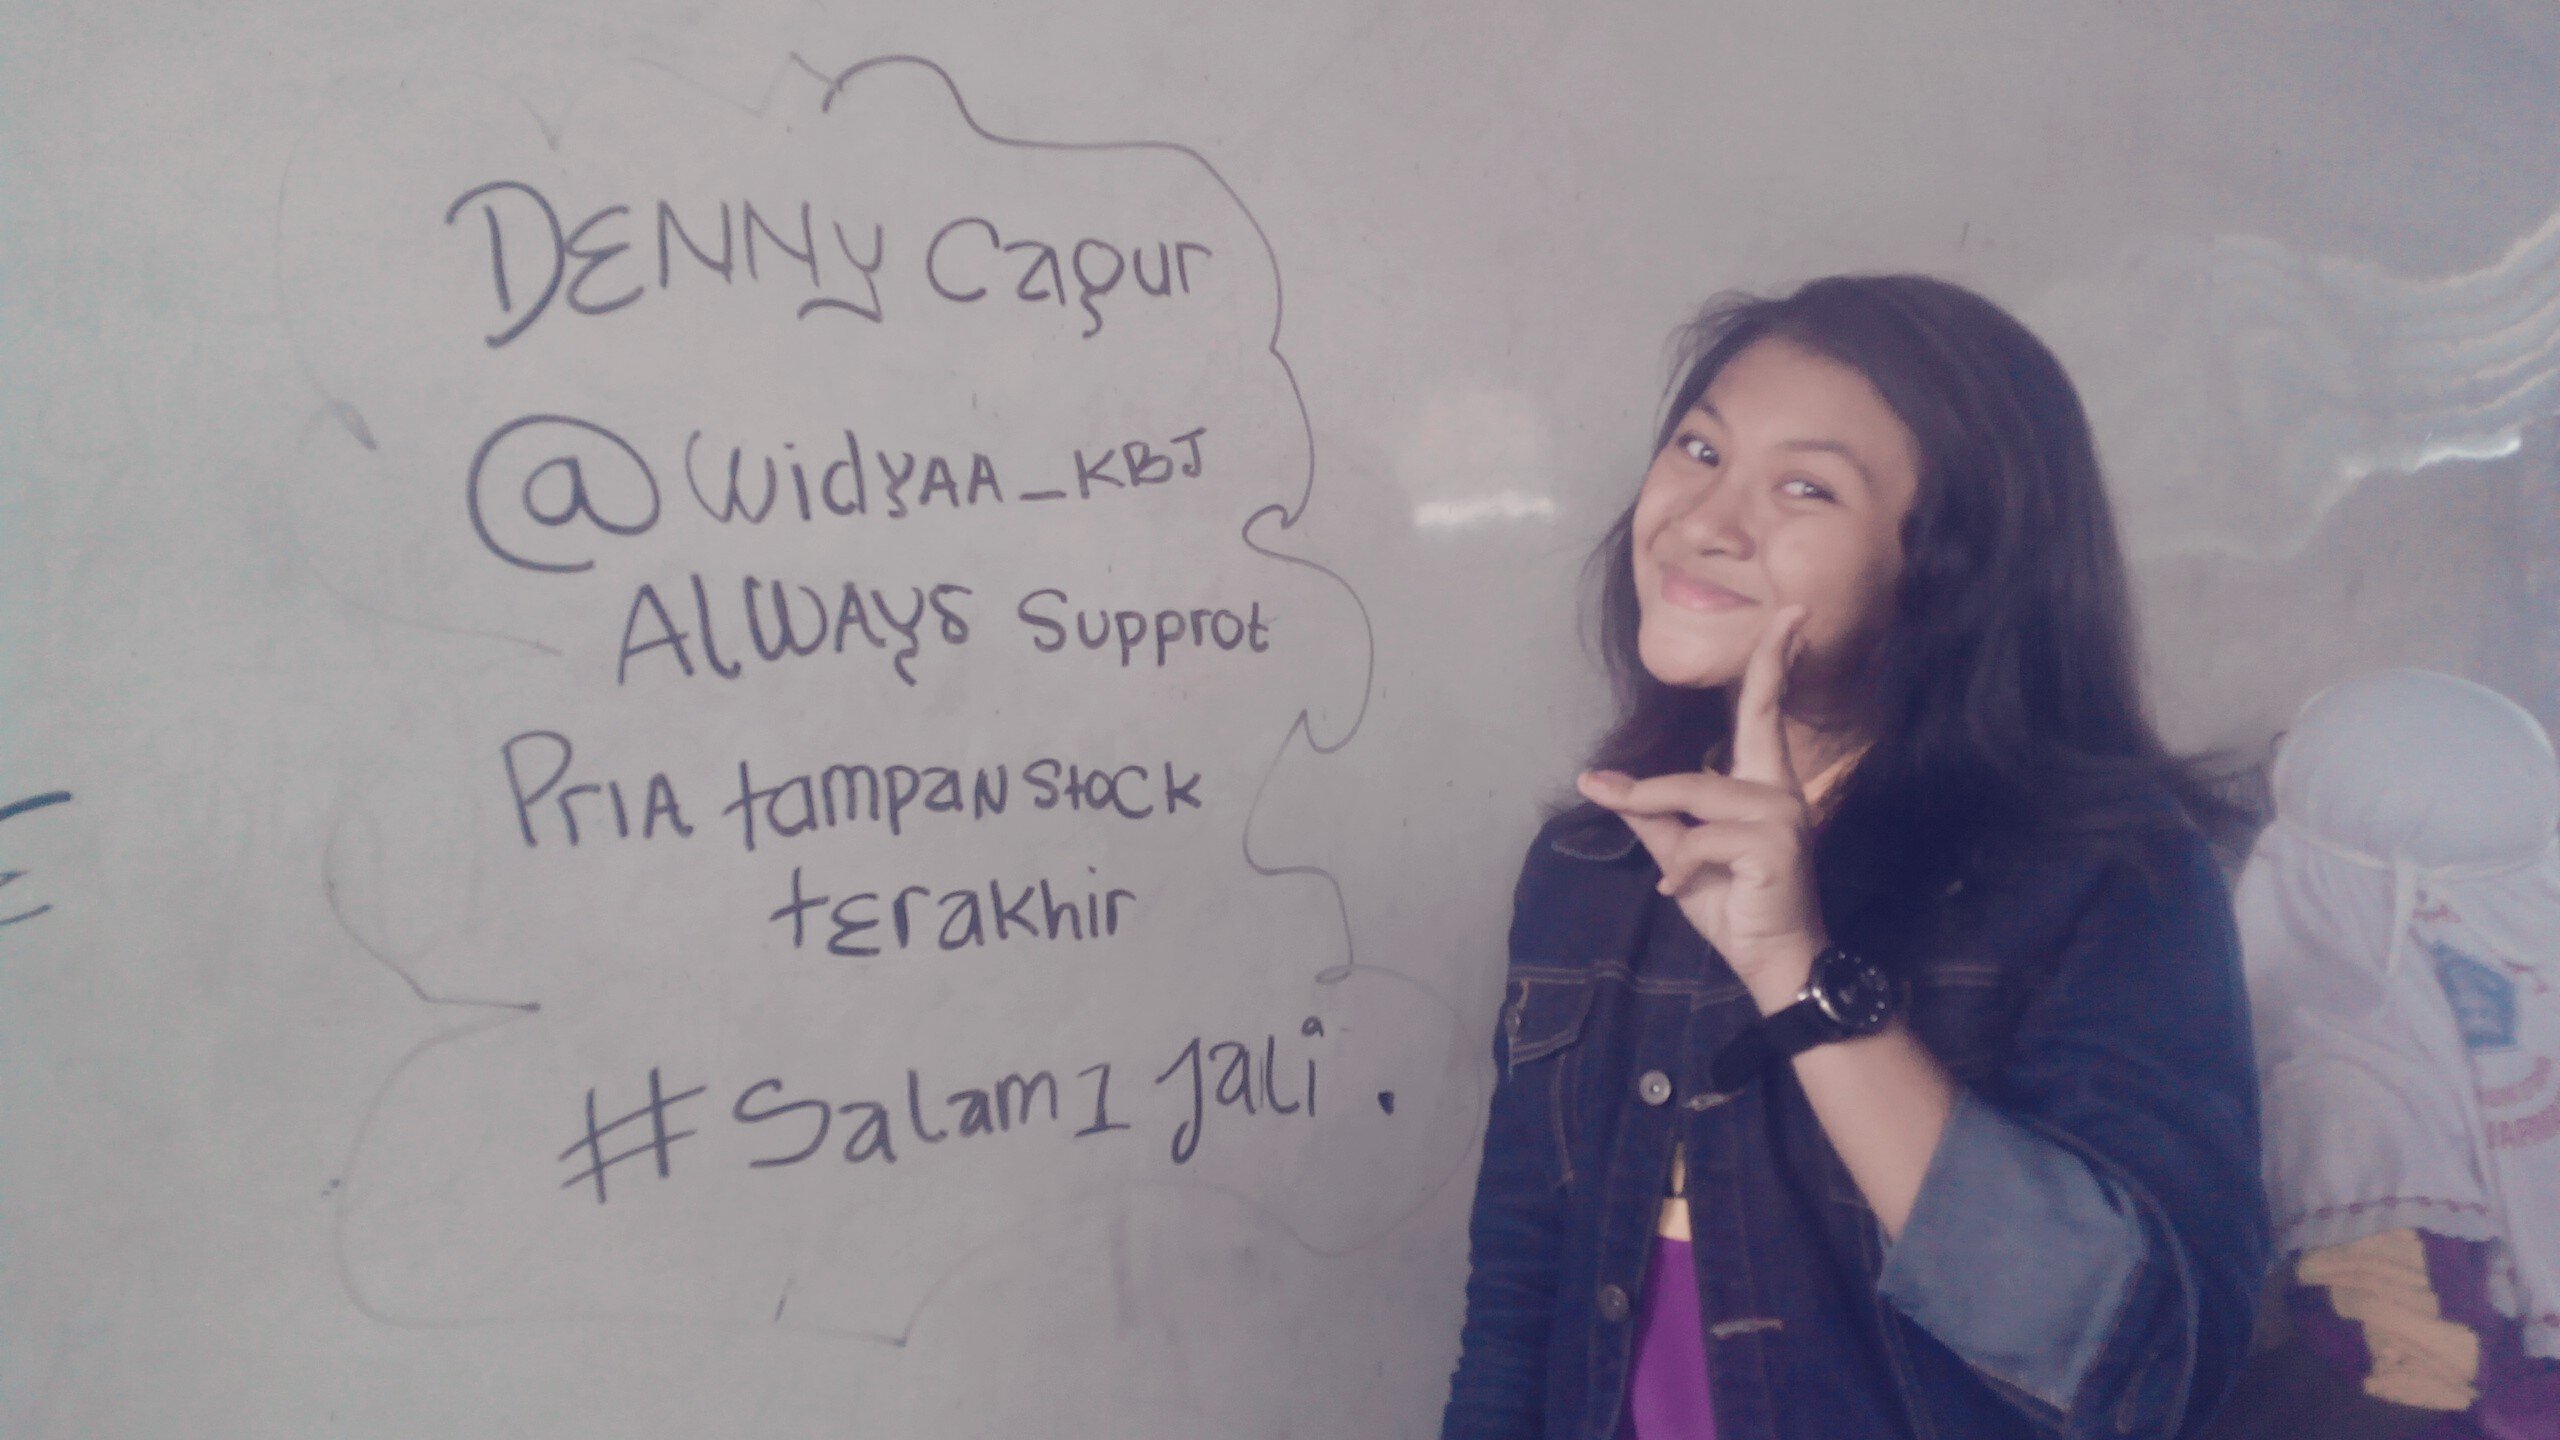 DENNY Cagur
@WidyAA_KBJ
AlWAyS Supprot
PrIA tampaN Stock
terakhir
#Salam1 Jali.